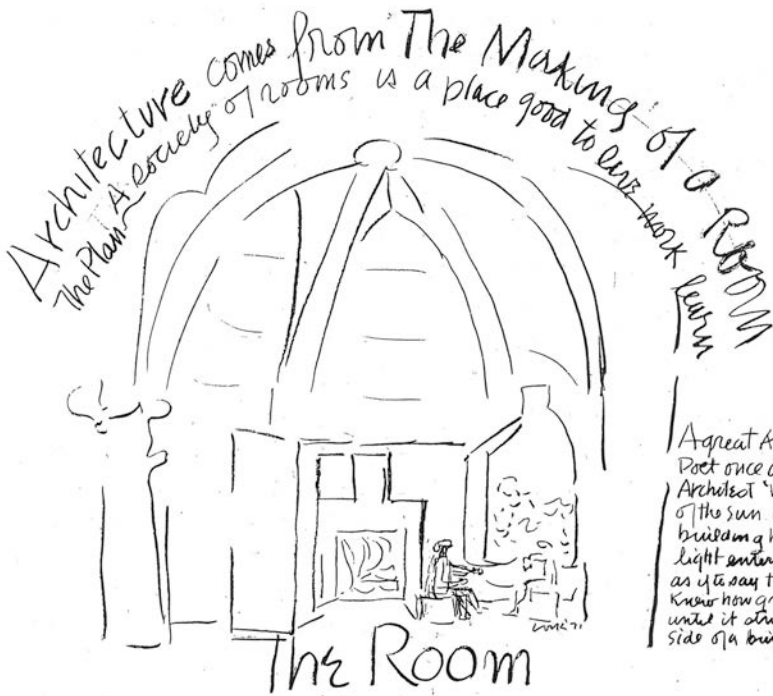 Architecture comes from The Making of a Room
The Plan A society of rooms is a place good to live work learn
A great A
Poet once a
Architect
of the sun
building h
light enter
as if to say t
Knew how gr
until it str
side of a bui
The Room